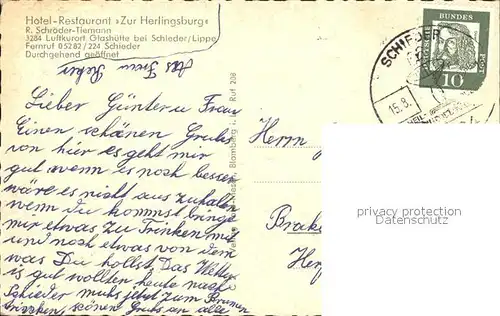 Hotel-Restaurant »Zur Herlingsburg«
R. Schröder-Tiemann
3284 Luftkurort Glashütte bei Schieder/Lippe
Fernruf 05282/224 Schieder
Durchgehend geöffnet
Lieber Günter u Frau
Einen schönen Gruhs
von hier es geht mir
gut wenn es noch besser
wäre es nicht aus zuhalten
wenn du kommst bringe
mir etwas zu Trinken mit
und noch etwas von dem
was Du hollst. Das Wetter
is gut wollten heute nach
Schieder muhs jetzt zum Brunnen
trinken, schönen Gruhs an alle
Blomberg i. L. Ruf 208
Herrn
Brake
SCHIEDER
15.8.
DEUTSCHE
BUNDES
POST
10
privacy protection
Datenschutz